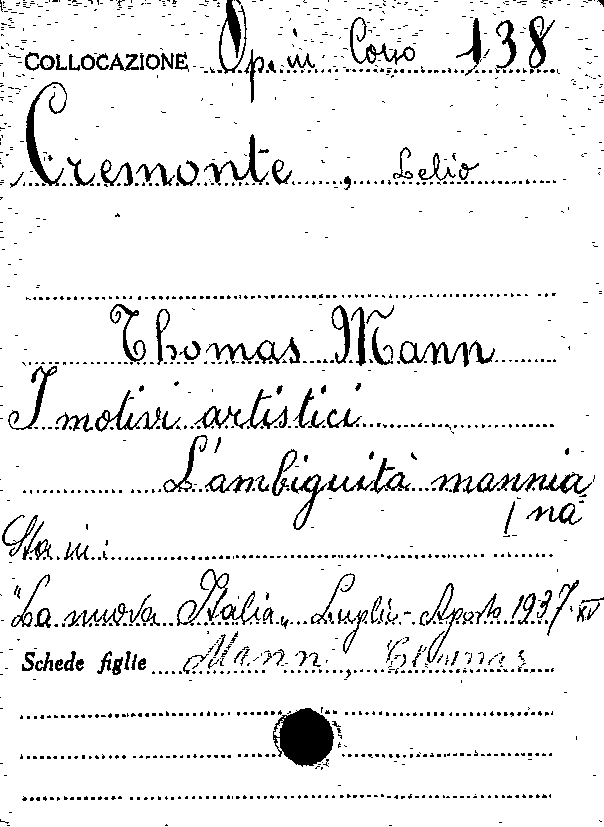 COLLOCAZIONE Op. in Corso 138
Cremonte, Lelio
Thomas Mann
I motivi artistici
L'ambiguità mannia
[na
Sta in:
"La nuova Italia" Luglio-Agosto 1937-XV
Schede figlie Mann, Thomas